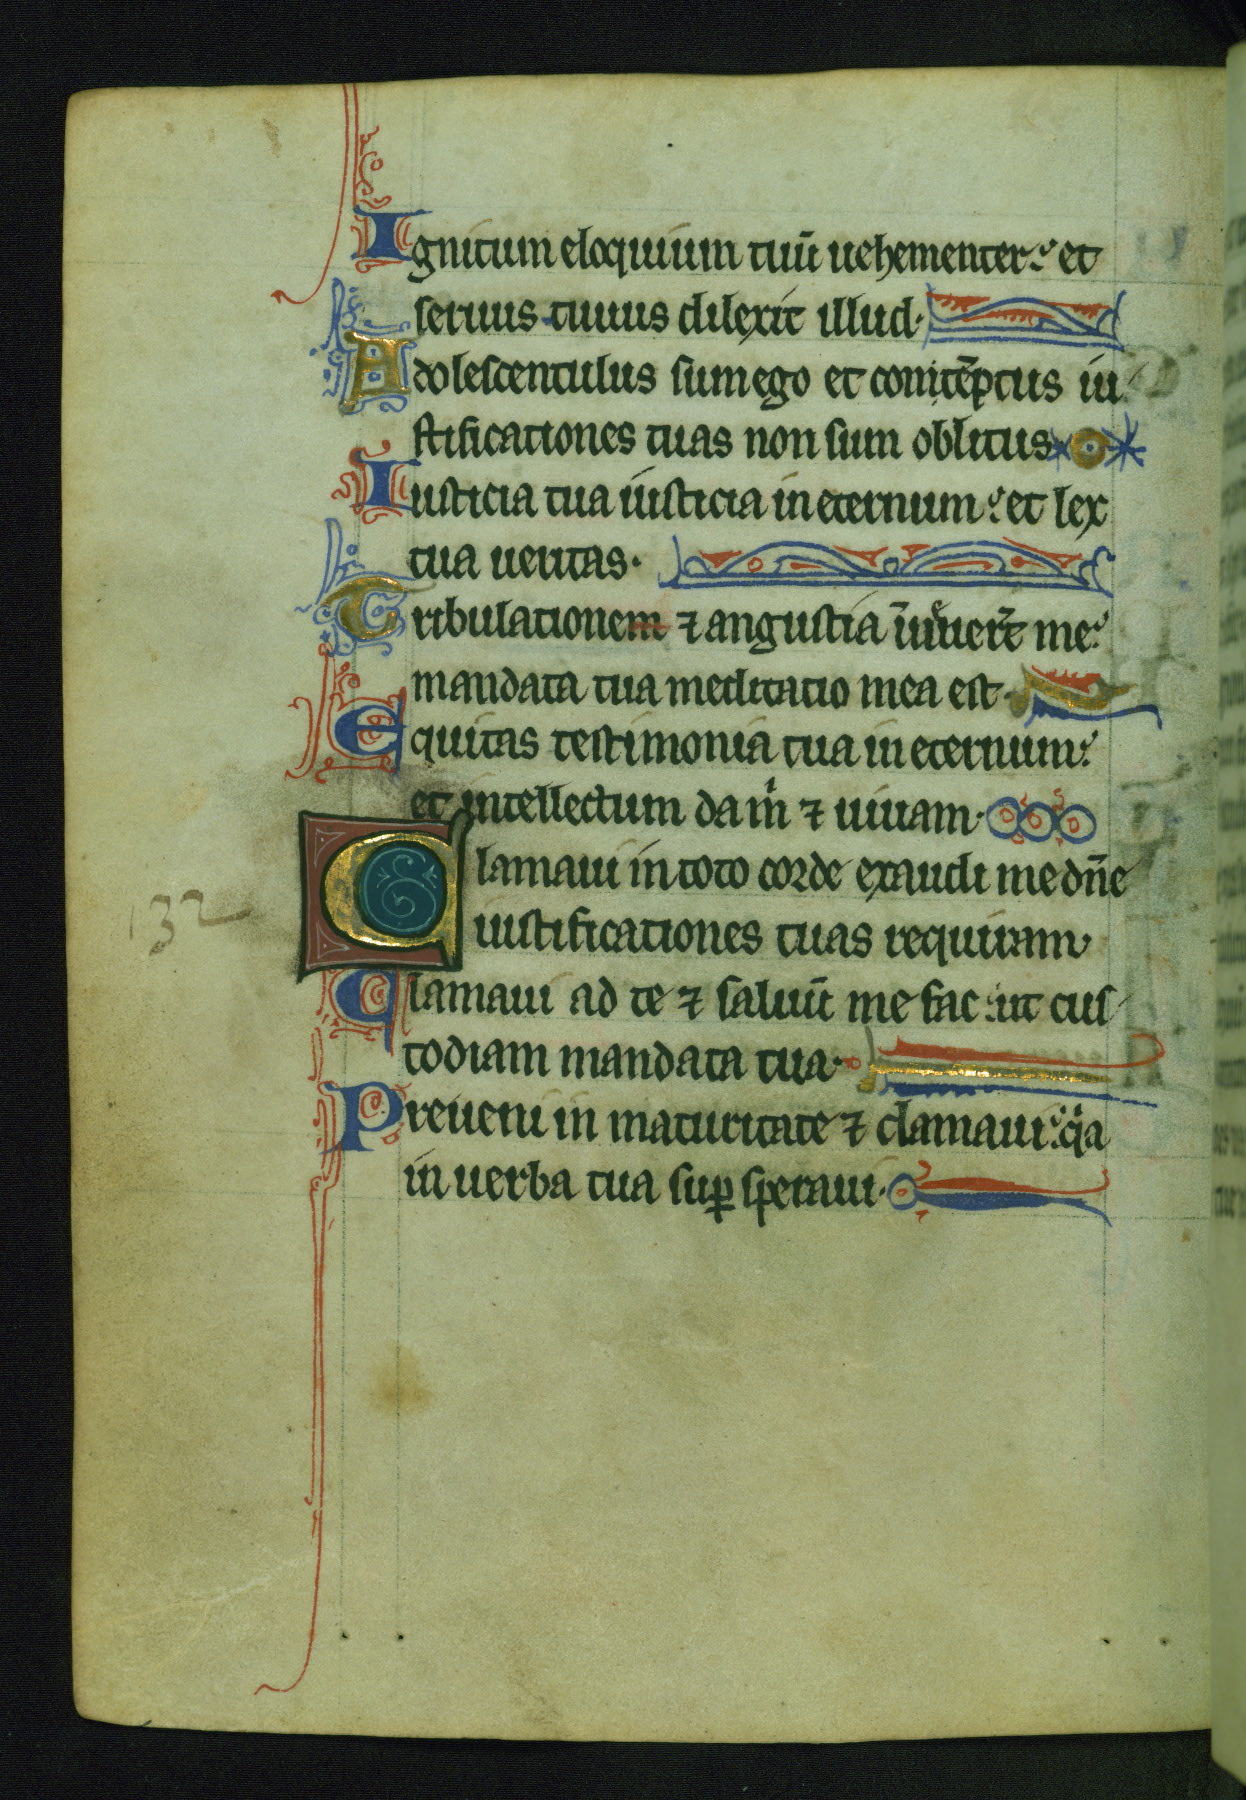 Ignitum eloquium tuū uehementer: et
seruus tuuus dilexit illud.
Adolescentulus sum ego et contēptus iu
stificationes tuas non sum oblitus
Iusticia tua iusticia in eternum: et lex
tua ueritas.
Tribulationem ⁊ angustia īuenerūt me:
mandata tua meditatio mea est.
Equitas testimonia tua in eternum:
et intellectum da m̄ ⁊ uiuam.
Clamaui in toto corde exaudi me dn̄e
iustificationes tuas requiram
Clamaui ad te ⁊ saluū me fac: ut cus
todiam mandata tua.
Preueni in maturitate ⁊ clamaui: qia
in uerba tua suꝑ speraui.
132